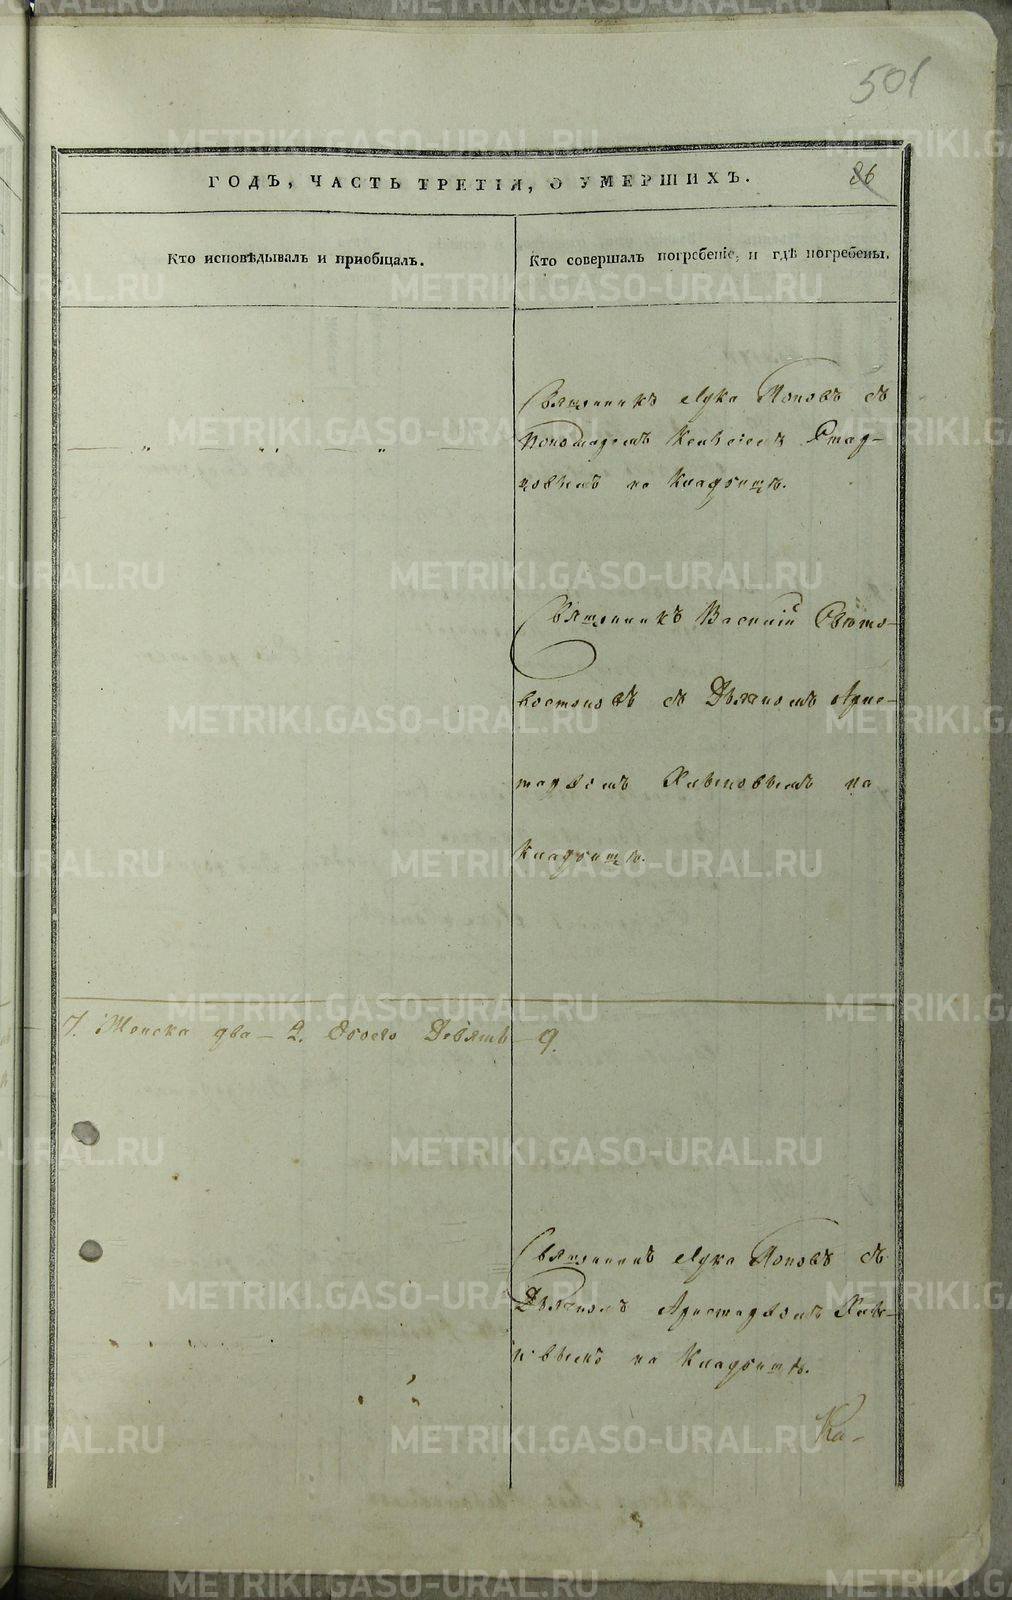 501
ГОДЪ, ЧАСТЬ ТРЕТІЯ, О УМЕРШИХЪ.
86
Кто исповѣдывалъ и пріобщалъ.
Кто совершалъ погребеніе, и гдѣ погребены.
Священникъ Лука Поповъ съ
Пономаремъ Стар-
цовымъ на Кладбищѣ.
Священникъ Василій Свѣто-
востоковъ съ Дьячкомъ Арис-
тархомъ на
Кладбищѣ.
7. Женска два — 2. Обоего Девять — 9.
Священникъ Лука Поповъ съ
Дьячкомъ Аристархомъ
на Кладбищѣ.
Ка-
METRIKI.GASO-URAL.RU